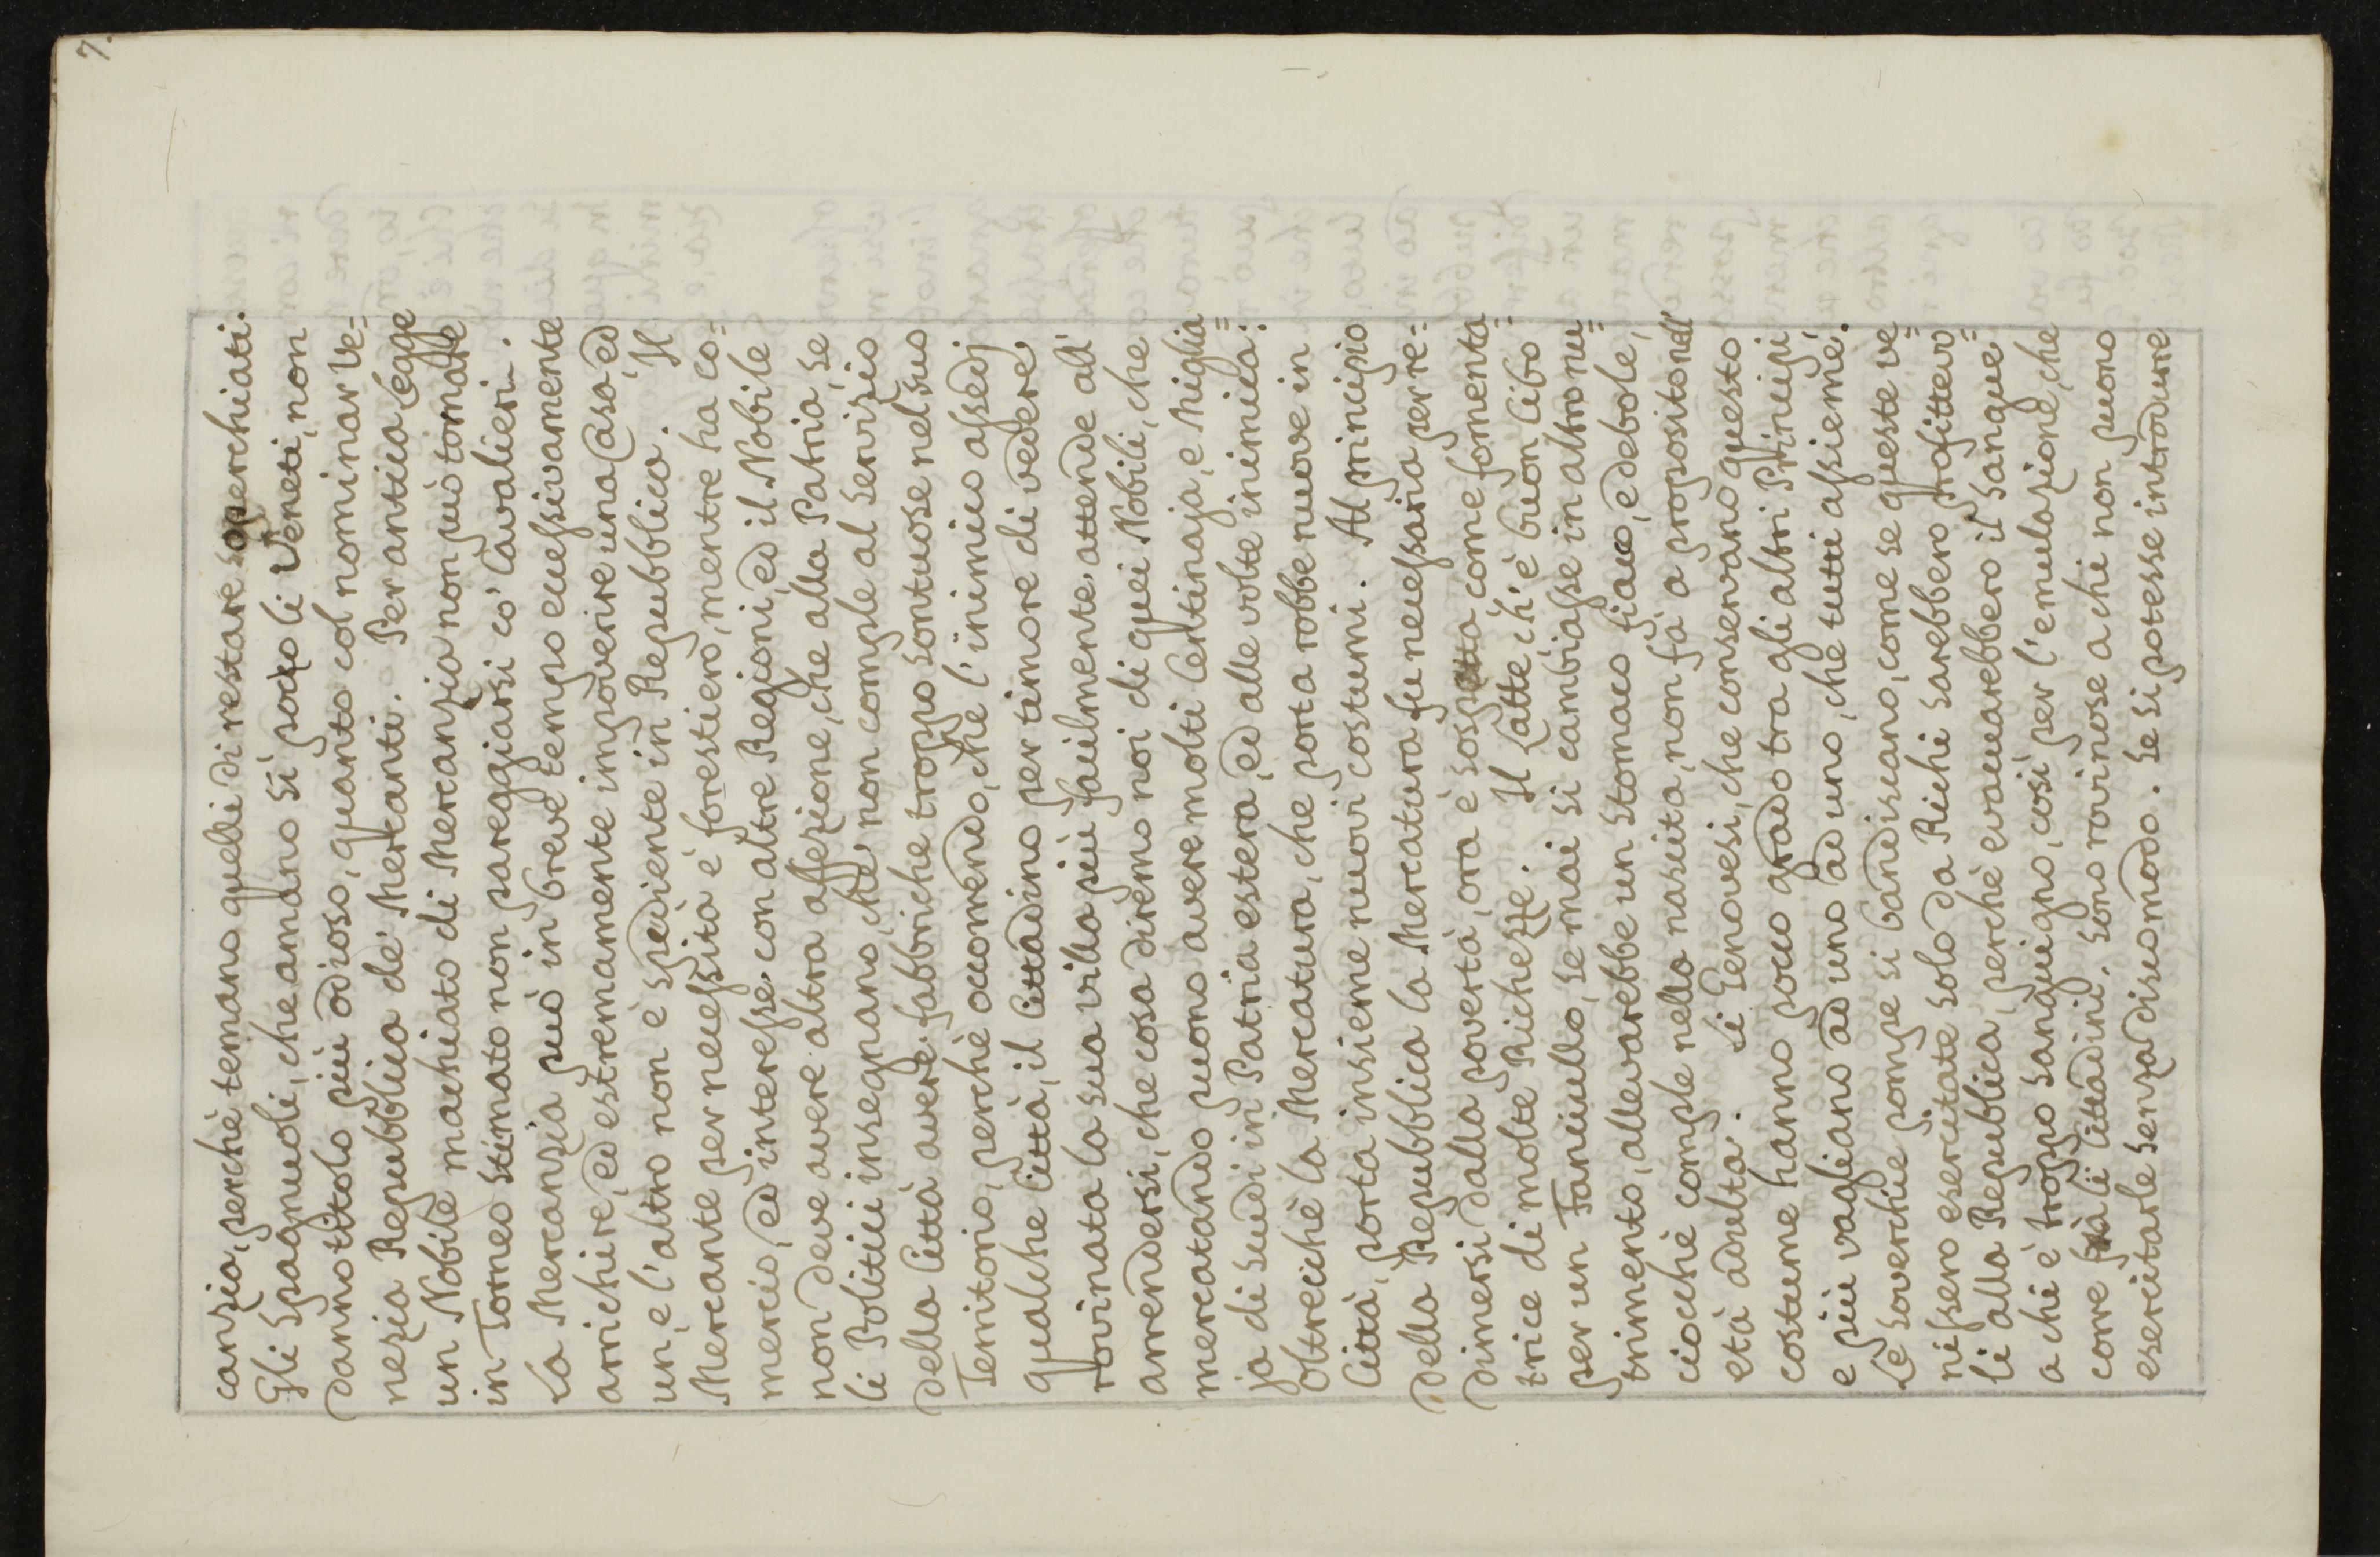 7.
canzia, perchè temano quelli di restare soperchiati.
Gli Spagnuoli, che amano sì poco li Veneti, non
danno titolo più odioso, quanto col nominar Ve=
nezia Repubblica de' Mercanti. Per antica Legge
un Nobile machiato di Mercanzia non può tornare
in Torneo stimato non pareggiarsi co' Cavalieri.
La Mercanzia può in breve tempo eccessivamente
arrichire, ed estremamente impoverire una Casa, ed
un, e l'altro non è spediente in Repubblica. Il
Mercante per necessità è forestiero, mentre ha co=
mercio, ed interesse con altre Regioni, ed il Nobile
non deve avere altra affezione, che alla Patria, se
li Politici insegnano, che non comple al servizio
della Città avere fabbriche troppo sontuose nel suo
Territorio, perchè occorrendo, che l'inimico assedj
qualche Città, il Cittadino per timore di vedere
rovinata la sua villa più facilmente attende all'
arrendersi, che cosa diremo noi di quei Nobili, che
mercatando puono avere molti Centinaja, e Miglia=
ja di Scudi in Patria estera, ed alle volte inimica:
Oltrecichè la Mercatura, che porta robbe nuove in
Città, porta insieme nuovi costumi. Al principio
della Repubblica la Mercatura fu necessaria per re=
dimersi dalla povertà, ora è sospetta come fomenta=
trice di molte Richezze. Il Latte ch'è buon Cibo
per un Fanciullo, se mai si cambiasse in altro nu=
trimento, allevarebbe un stomaco fiacco, e debole,
ciocchè comple nella nascita, non fà a proposito nell'
età adulta. Li Genovesi, che conservano questo
costume hanno poco grado tra gli altri Principi,
e più vagliano ad uno ad uno, che tutti assieme.
Le soverchie pompe si bandiscano, come se queste ve=
nissero esercitate solo da Richi sarebbero profittevo=
li alla Republica, perchè evacuarebbero il sangue
a chi è troppo sanguigno, così per l'emulazione, che
corre frà li Cittadini, sono rovinose a chi non puono
esercitarle senza discomodo. Se si potesse introdurre